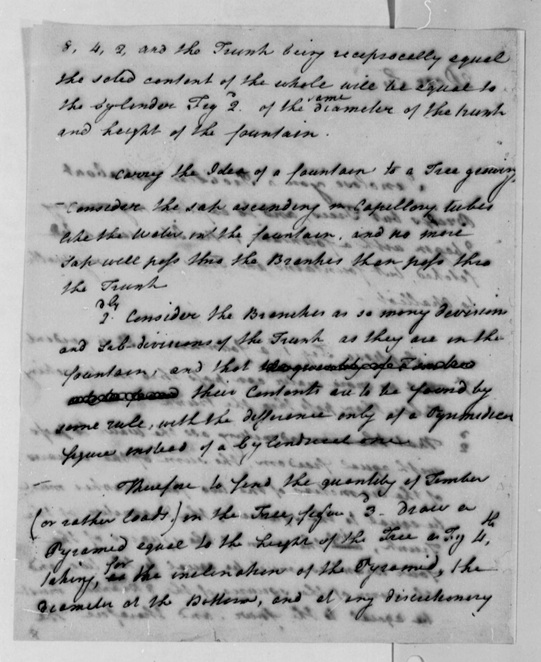 8, 4, 2, and the Trunk being reciprocally equal
the solid content of the whole will be equal to
the Cylinder Fig 2.d of the same diameter of the trunk
and height of the fountain.
Carry the Idea of a fountain to a Tree growing,
Consider the sap ascending in Capellory tubes
like the Water in the fountain, and no more
sap will pass thro the Branches than pass thro
the Trunk
2.dly Consider the Branches as so many divisions
and Sub-divisions of the Trunk as they are in the
fountain, and that the quantity of Timber
their Contents are to be found by
some rule, with the difference only of a Pyramedicer
figure instead of a Cylindrical one.
Therefore to find the quantity of Timber
(or rather loads) in the Tree, figure 3.d Draw a
Pyramid equal to the height of the Tree as Fig 4,th
taking, for the inclination of the Pyramid, the
diameter at the Bottom, and at any discretionary